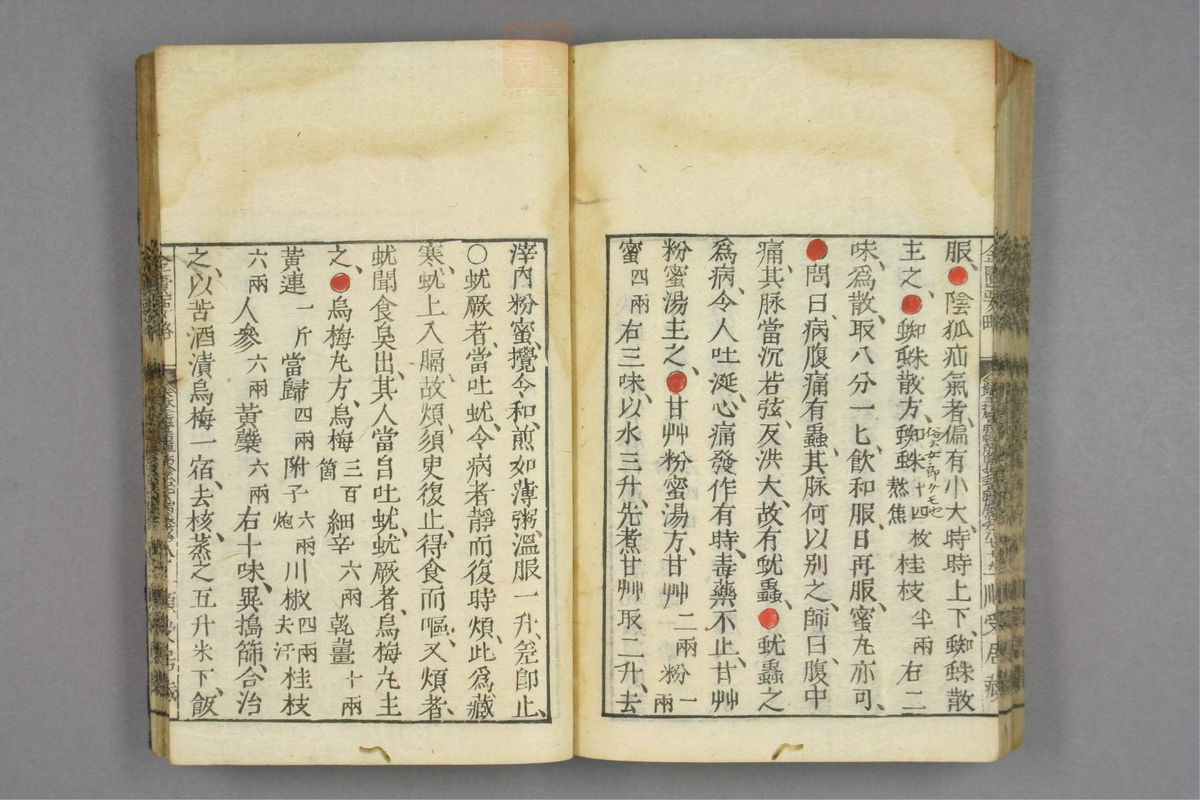 服、陰狐疝氣者、偏有小大、時時上下、蜘蛛散
主之、蜘蛛散方、蜘蛛十四枚熬焦桂枝半兩右二
味、爲散、取八分一匕、飲和服、日再服、蜜丸亦可、
問曰、病腹痛有蟲、其脉何以別之、師曰、腹中
痛、其脉當沉若弦、反洪大、故有蚘蟲、蚘蟲之
爲病、令人吐涎、心痛發作有時、毒藥不止、甘艸
粉蜜湯主之、甘艸粉蜜湯方、甘艸二兩粉一兩
蜜四兩右三味、以水三升、先煮甘艸取二升、去
滓、內粉蜜、攪令和、煎如薄粥、溫服一升、差即止、
〇蚘厥者、當吐蚘、令病者靜而復時煩、此爲藏
寒、蚘上入膈、故煩、須臾復止、得食而嘔、又煩者、
蚘聞食臭出、其人當自吐蚘、蚘厥者、烏梅丸主
之、烏梅丸方、烏梅三百箇細辛六兩乾薑十兩
黃連一斤當歸四兩附子六兩炮川椒四兩去汗桂枝
六兩人參六兩黃蘗六兩右十味、異搗篩、合治
之、以苦酒漬烏梅一宿、去核、蒸之五升米下、飯
順受居藏